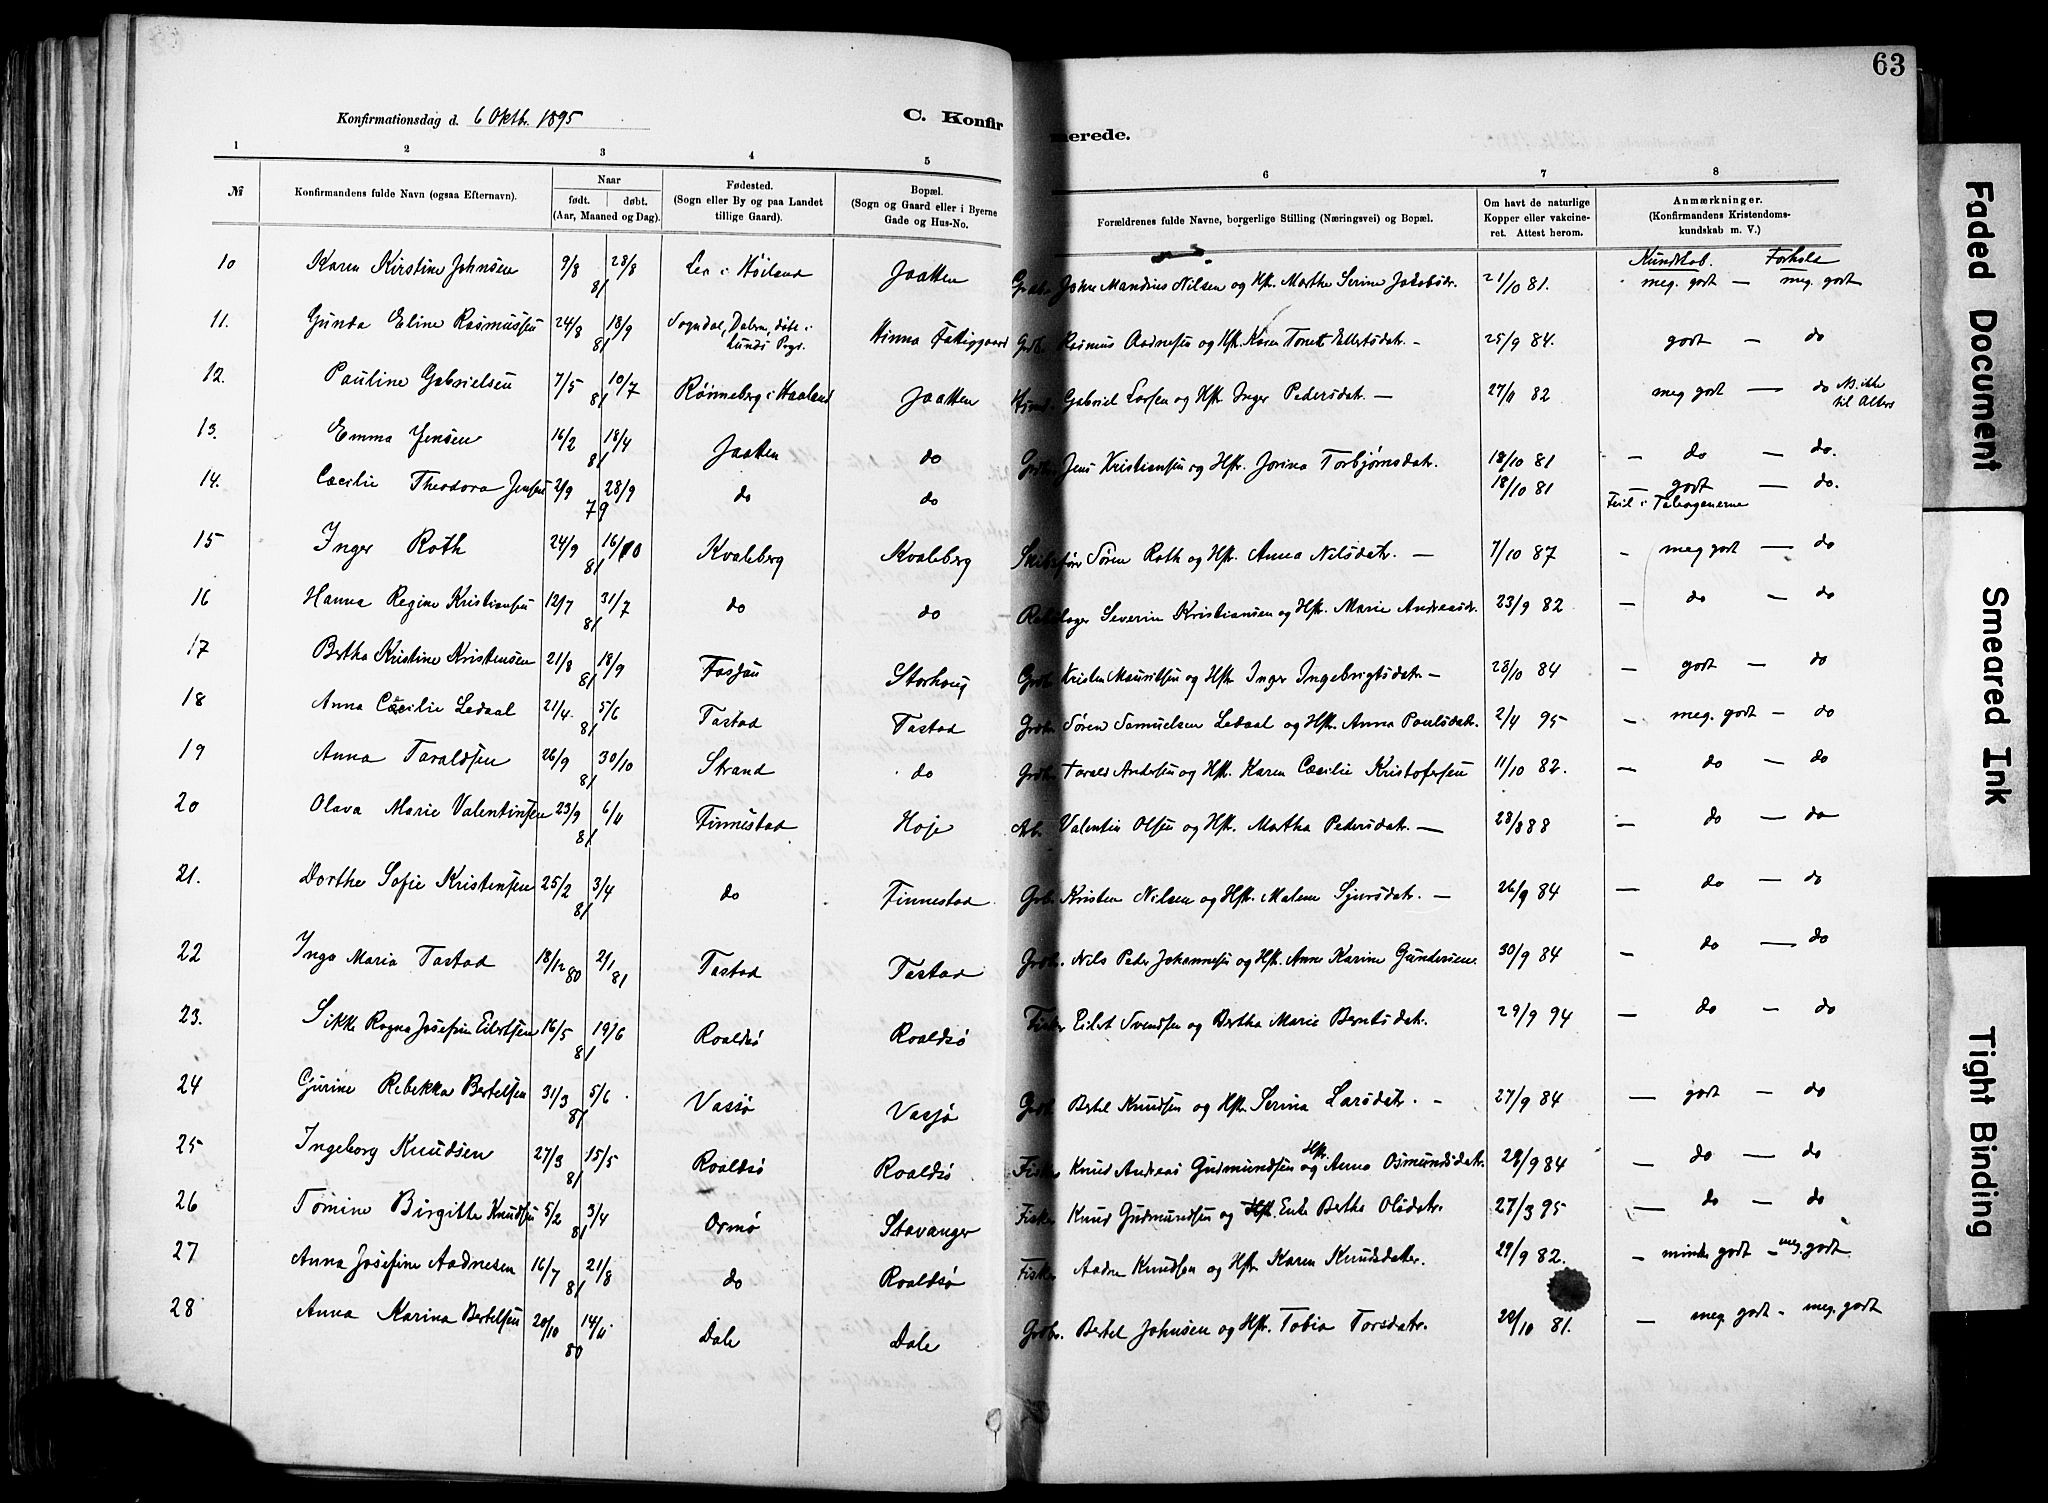 63
Konfirmationsdag d. 6 Oktb. 1895
C. Konfirmerede.
1 2 3 4 5 6 7 8
№ Konfirmandens fulde Navn (ogsaa Efternavn). Naar født. døbt. (Aar, Maaned og Dag). Fødested. (Sogn eller By og paa Landet tillige Gaard). Bopæl. (Sogn og Gaard eller i Byerne Gade og Hus-No. Forældrenes fulde Navne, borgerlige Stilling (Næringsvei) og Bopæl. Om havt de naturlige Kopper eller vakcineret. Attest herom. Anmærkninger. (Konfirmandens Kristendomskundskab m. V.)
Kundskab. Forhold
10 Karen Kirstine Johnsen 9/8 28/8 81 Lea i Höiland Jaatten Grbr. John Mandius Nilsen og Hst. Marthe Serine Jakobsdr. 21/10 81. meg. godt — meg. godt
11. Gunda Eline Rasmussen 24/8 18/9 81 Sogndal, Dalen, døbt i Lunds Prgj. Hinna Fattiggaard Grdb. Rasmus Aadnesen og Hst. Karen Tonett Ellertsdatr. — 25/9 84. godt — do
12. Pauline Gabrielsen 7/5 10/7 81 Rönneberg i Haaland Jaatten Gabriel Larsen og Hst Inger Pedersdatr. — 27/11 82 meg godt — do NB. ikke til Alters
13. Emma Jensen 16/2 18/4 81 Jaatten do Grdb. Jens Kristiansen og Hst. Jorina Torbjørnsdatr. 18/10 81 — do — do.
14. Cæcilie Theodora Jensen 2/9 28/9 79 do do 18/10 81 — godt — do.
Feil i Taleorganerne
15 Inger Roth 24/9 16/10 81 Kvaleberg Kvaleberg Skibsfører Sören Roth og Hst. Anna Nilsdatr. — 7/10 87 — meg godt — do
16 Hanna Regine Kristiansen 12/7 31/7 81 do do Rebslager Severin Kristiansen og Hst. Marie Andreasdr. 23/9 82 — do — do
17 Bertha Kristine Kristensen 21/8 18/9 81 Tasgau Storhoug Grdb. Kristen Mauritsen og Hst Inger Ingebrigtsdatr. — 28/10 84 — godt — do
18 Anna Cæcilie Ledaal 21/4. 5/6 81 Tastad Tastad Grdbr. Sören Samuelsen Ledaal og Hst. Anna Paulsdatr. 2/4 95 — meg. godt — do
19 Anna Taraldsen 26/9 30/10 81 Strand do Grdb. Tarald Andersen og Hst. Karen Cæcilie Kristofersen 11/10 82. — do — do
20 Olava Marie Valentinsen 23/9 6/11 81 Finnestad Hoje Arb. Valentin Olsen og Hst. Martha Pedersdatr. — 28/8 88 — do — do
21. Dorthe Sofie Kristensen 25/2 3/4 81 do Finnestad. Grb. Kristen Nilsen og Hst. Malene Sjursdatr. — 26/9 84 — do — do
22 Inga Maria Tastad 18/12 80 2/1 81 Tastad Tastad Grdb. Nils Peder Johannesen og Hst. Anne Karine Gundersen. 30/9 84 — do — do
23. Sikke Ragna Josefine Eilertsen 16/5 19/6 81 Roaldsö Roaldsö Fisker Eilert Svendsen og Bertha Marie Berntsdatr. 29/9 94 — do — do
24 Gurine Rebekka Bertelsen 31/3 5/6 81 Vassö Vassö Grdb Bertel Knudsen og Hst Serina Larsdatr. — 27/9 84 — godt — do
25 Ingeborg Knudsen 27/3 15/5 81 Roaldsö Roaldsö Fisker Knud Andreas Gudmundsen og Hst. Anna Osmundsdatr. 28/9 84 — do — do
26 Tomine Birgitte Knudsen 5/2 3/4 81 Ormö Stavanger Fisker Knud Gudmundsen og Hst. Enke Bertha Olsdatr. 27/3 95 — do — do
27 Anna Josefine Aadnesen 16/7 21/8 81 do Roaldsö Fisker Aadne Knudsen og Hst Karen Knudsdatter. 29/9 82. — mindre godt — meg. godt
28 Anna Karina Bertelsen 20/10 14/11 80 Dale Dale Grdbr. Bertel Johnsen og Hst. Tobia Torsdatr. 20/10 81. — meg godt — meg. godt
Faded Document
Smeared Ink
Tight Binding